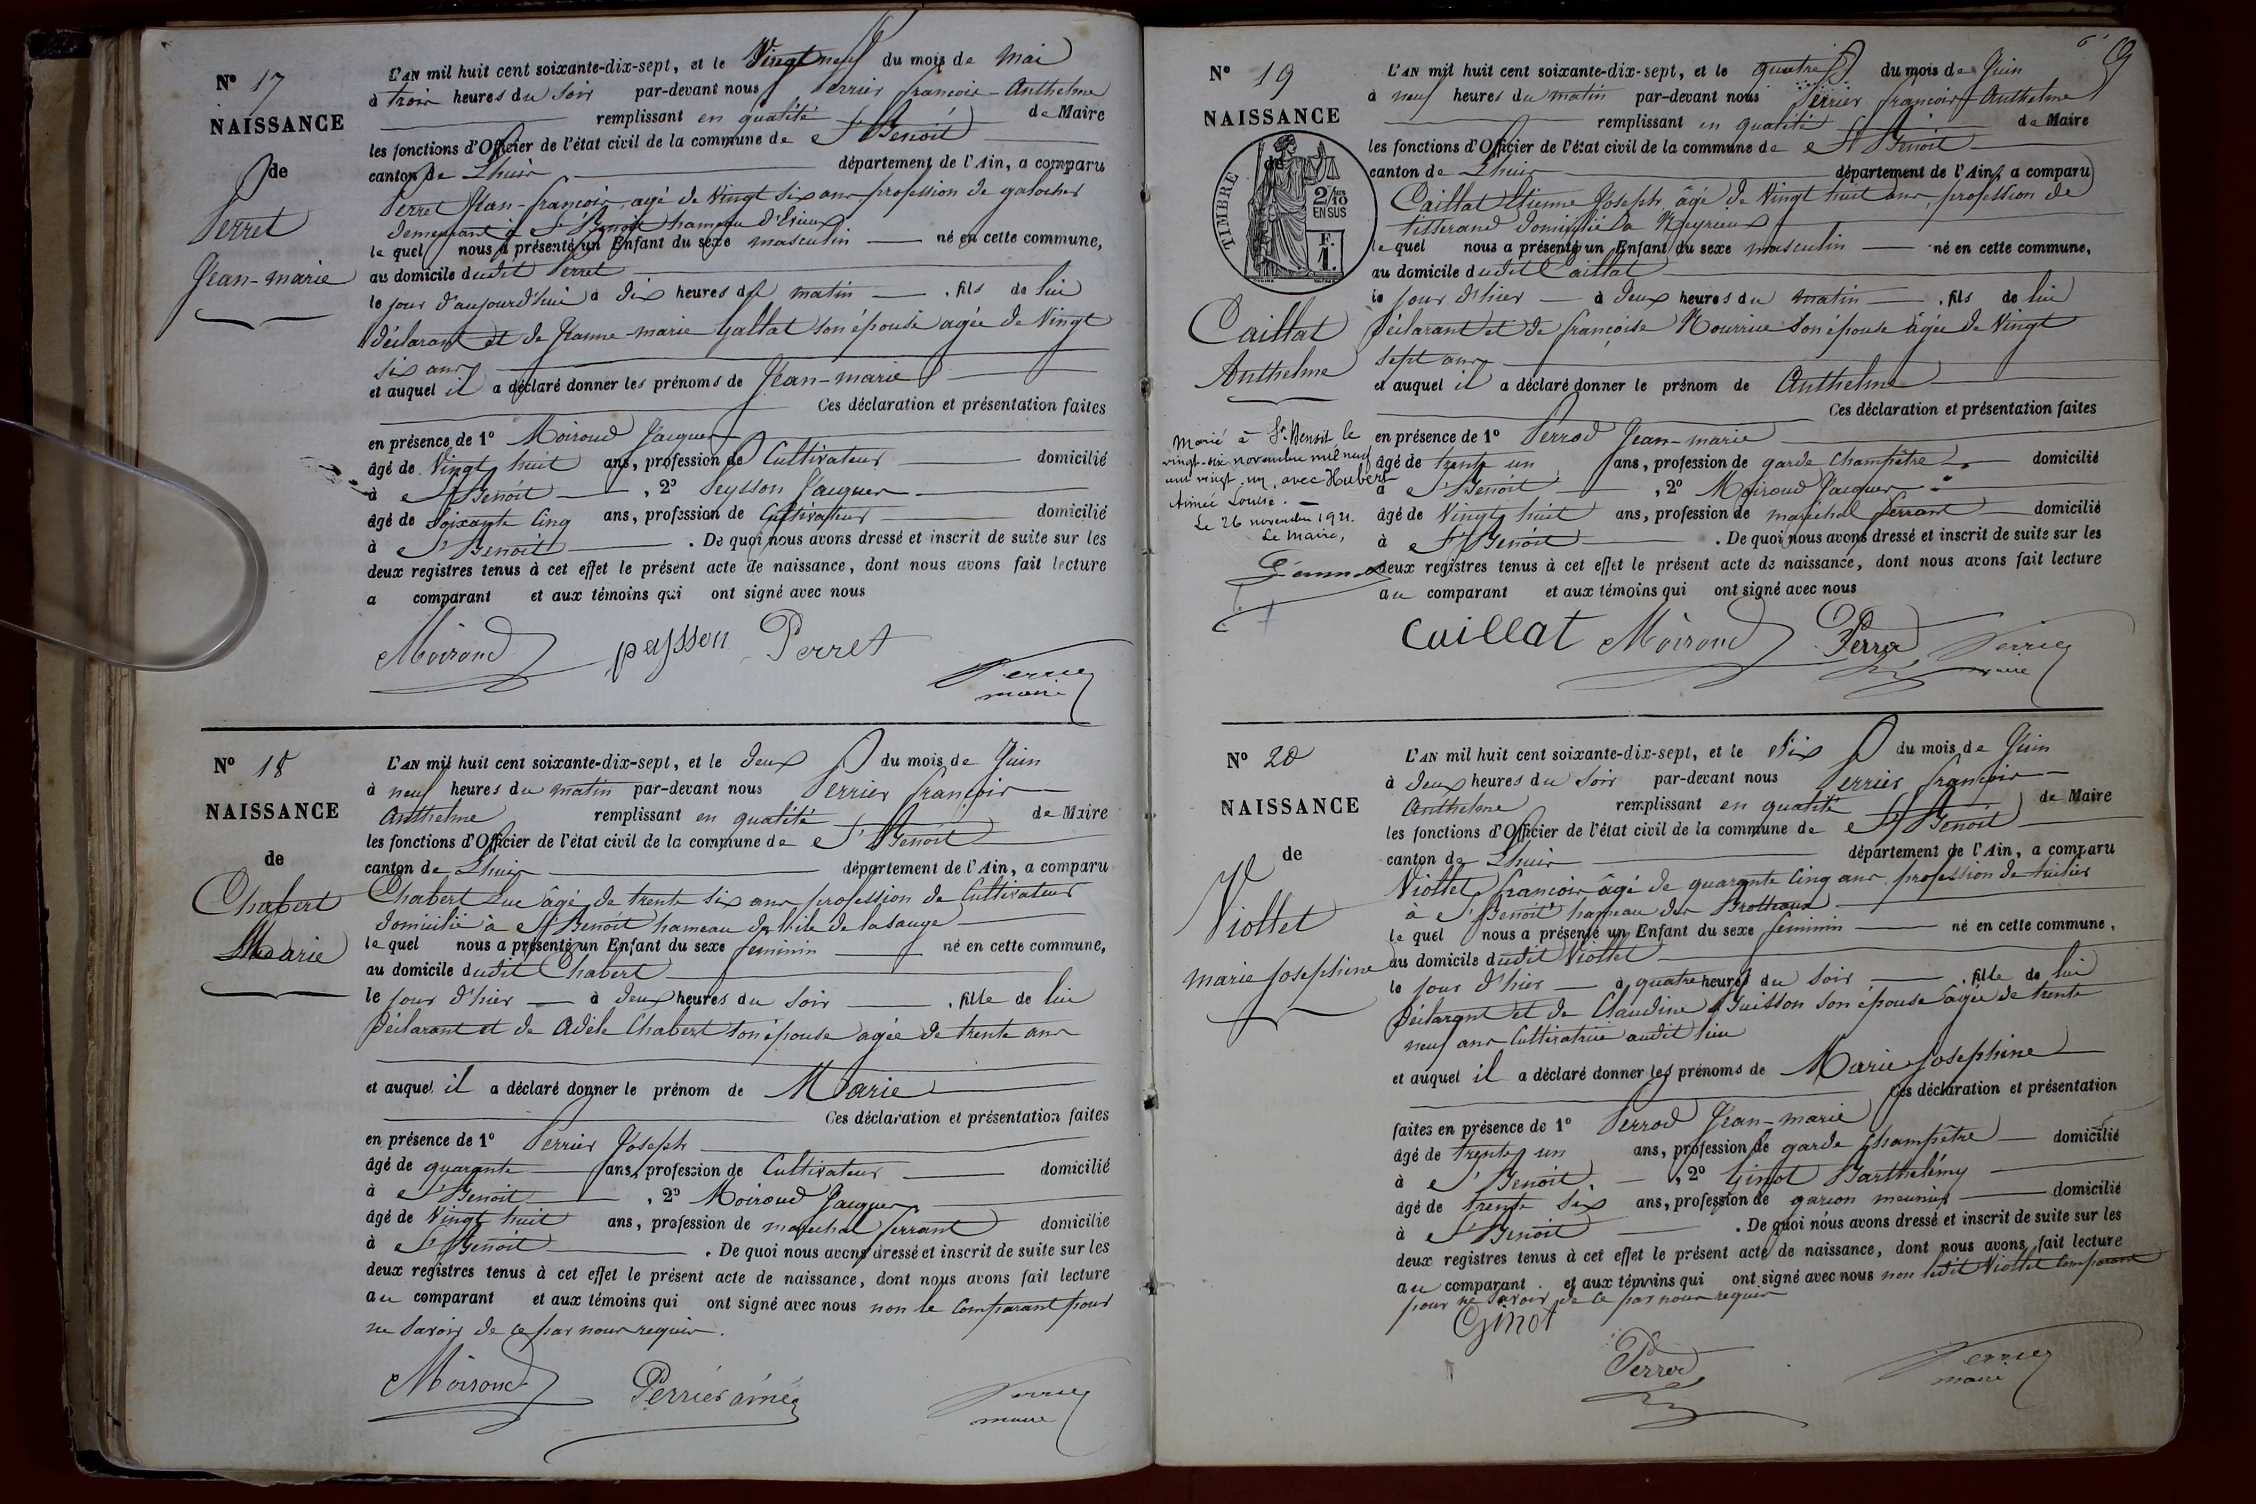 N° 17
NAISSANCE
de
Perret
Jean-marie
L'AN mil huit cent soixante-dix-sept, et le Vingt neuf du mois de mai
à trois heures du soir par-devant nous Perrier françois-Anthelme
remplissant en qualité de Maire
les fonctions d'Officier de l'état civil de la commune de St Benoit
canton de Lhuis département de l'Ain, a comparu
Perret Jean-françois, agé de Vingt six ans profession de galocher
demeurant à St Benoit hameau d'Evieux
le quel nous a présenté un Enfant du sexe masculin né en cette commune,
au domicile dudit Perret
le jour d'aujourd'hui à dix heures du matin , fils de lui
déclarant et de Jeanne-marie Gallat son épouse agée de Vingt
six ans
et auquel il a déclaré donner les prénoms de Jean-marie
Ces déclaration et présentation faites
en présence de 1° Moiroud Jacques
âgé de Vingt huit ans, profession de Cultivateur domicilié
à St Benoit , 2° Peysson Jacques
âgé de Soixante Cinq ans, profession de Cultivateur domicilié
à St Benoit . De quoi nous avons dressé et inscrit de suite sur les
deux registres tenus à cet effet le présent acte de naissance, dont nous avons fait lecture
a comparant et aux témoins qui ont signé avec nous
Moiroud paysson Perret
Perrier
maire
N° 18
NAISSANCE
de
Chabert
Marie
L'AN mil huit cent soixante-dix-sept, et le deux du mois de Juin
à neuf heures du matin par-devant nous Perrier françois
Anthelme remplissant en qualité de Maire
les fonctions d'Officier de l'état civil de la commune de St Benoit
canton de Lhuis département de l'Ain, a comparu
Chabert Luc âgé de trente six ans profession de Cultivateur
domicilié à St Benoit hameau de l'ile de la sauge
le quel nous a présenté un Enfant du sexe feminin né en cette commune,
au domicile dudit Chabert
le jour d'hier à deux heures du soir , fille de lui
déclarant et de Adèle Chabert son épouse agée de trente ans
et auquel il a déclaré donner le prénom de Marie
Ces déclaration et présentation faites
en présence de 1° Perrier Joseph
âgé de quarante ans, profession de Cultivateur domicilié
à St Benoit , 2° Moiroud Jacques
âgé de Vingt huit ans, profession de marechal ferrant domicilié
à St Benoit . De quoi nous avons dressé et inscrit de suite sur les
deux registres tenus à cet effet le présent acte de naissance, dont nous avons fait lecture
au comparant et aux témoins qui ont signé avec nous non le Comparant pour
ne savoir de ce par nous requis.
Moiroud Perrier ainé Perrier
maire
6
N° 19
NAISSANCE
de
TIMBRE
2/10
EN SUS
F.
1.
Caillat
Anthelme
Marié à St Benoit le
vingt-six novembre mil neuf
cent vingt un, avec Hubert
Aimée Louise.
Le 26 novembre 1921.
Le Maire,
L'AN mil huit cent soixante-dix-sept, et le quatre du mois de Juin
à neuf heures du matin par-devant nous Perrier françois Anthelme
remplissant en qualité de Maire
les fonctions d'Officier de l'état civil de la commune de St Benoit
canton de Lhuis département de l'Ain, a comparu
Caillat Etienne Joseph, âgé de Vingt huit ans, profession de
tisserand domicilié à Neyrieux
le quel nous a présenté un Enfant du sexe masculin né en cette commune,
au domicile dudit Caillat
le jour d'hier à deux heures du matin , fils de lui
déclarant et de françoise Nourrice son épouse âgée de Vingt
sept ans
et auquel il a déclaré donner le prénom de Anthelme
Ces déclaration et présentation faites
en présence de 1° Perrod Jean-marie
âgé de trente un ans, profession de garde Champêtre domicilié
à St Benoit , 2° Moiroud Jacques
âgé de Vingt huit ans, profession de maréchal ferrant domicilié
à St Benoit . De quoi nous avons dressé et inscrit de suite sur les
deux registres tenus à cet effet le présent acte de naissance, dont nous avons fait lecture
au comparant et aux témoins qui ont signé avec nous
Caillat Moiroud Perrod Perrier
maire
N° 20
NAISSANCE
de
Viollet
marie Josephine
L'AN mil huit cent soixante-dix-sept, et le Six du mois de Juin
à deux heures du soir par-devant nous Perrier françois
Anthelme remplissant en qualité de Maire
les fonctions d'Officier de l'état civil de la commune de St Benoit
canton de Lhuis département de l'Ain, a comparu
Viollet françois âgé de quarante Cinq ans profession de tuilier
à St Benoit hameau des Brotteaux
le quel nous a présenté un Enfant du sexe feminin né en cette commune,
au domicile dudit Viollet
le jour d'hier à quatre heures du soir , fille de lui
déclarant et de Claudine Buisson son épouse âgée de trente
neuf ans Cultivatrice audit lieu
et auquel il a déclaré donner les prénoms de Marie Josephine
Ces déclaration et présentation
faites en présence de 1° Perrod Jean-marie
âgé de trente un ans, profession de garde Champêtre domicilié
à St Benoit. , 2° Ginot Barthelémy
âgé de trente six ans, profession de garçon meunier domicilié
à St Benoit . De quoi nous avons dressé et inscrit de suite sur les
deux registres tenus à cet effet le présent acte de naissance, dont nous avons fait lecture
au comparant et aux témoins qui ont signé avec nous non ledit Viollet Comparant
pour ne savoir de ce par nous requis
Ginot
Perrod Perrier
maire